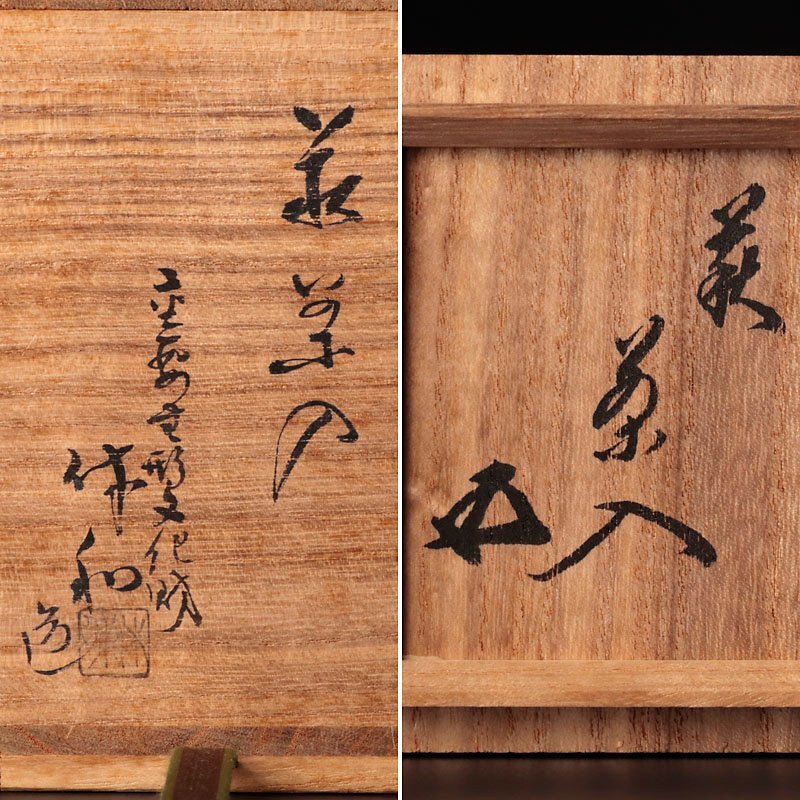 萩
茶入
重要無形文化財
休和
造
萩
茶
入